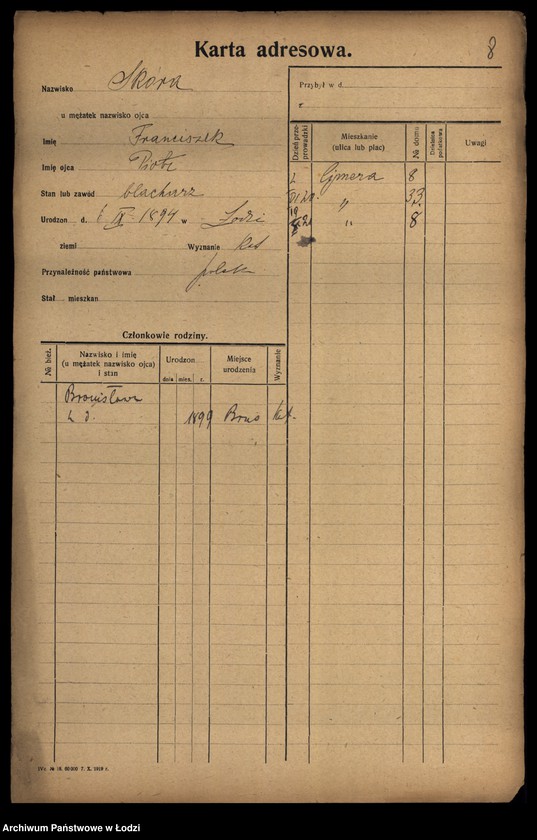 8
Karta adresowa.
Nazwisko Skóra
u mężatek nazwisko ojca
Imię Franciszek
Imię ojca Piotr
Stan lub zawód blacharz
Urodzon d. IX 1894 w Łodzi
ziemi Wyznanie Kat
Przynależność państwowa polska
Stał mieszkan.
Przybył w d.
r.
Dzień przeprowadzki
Mieszkanie
(ulica lub plac)
№ domu
Dzielnica
Uwagi
Gjmera 8
" 33.
" 8
Członkowie rodziny.
№ bież.
Nazwisko i imię
(u mężatek nazwisko ojca)
i stan
Urodzon
dnia mies. r.
Miejsce
urodzenia
Wyznanie
Bronisława
z d. 1899 Brus Kat.
№ 18. 60000 7. X. 1919 r.
Archiwum Państwowe w Łodzi